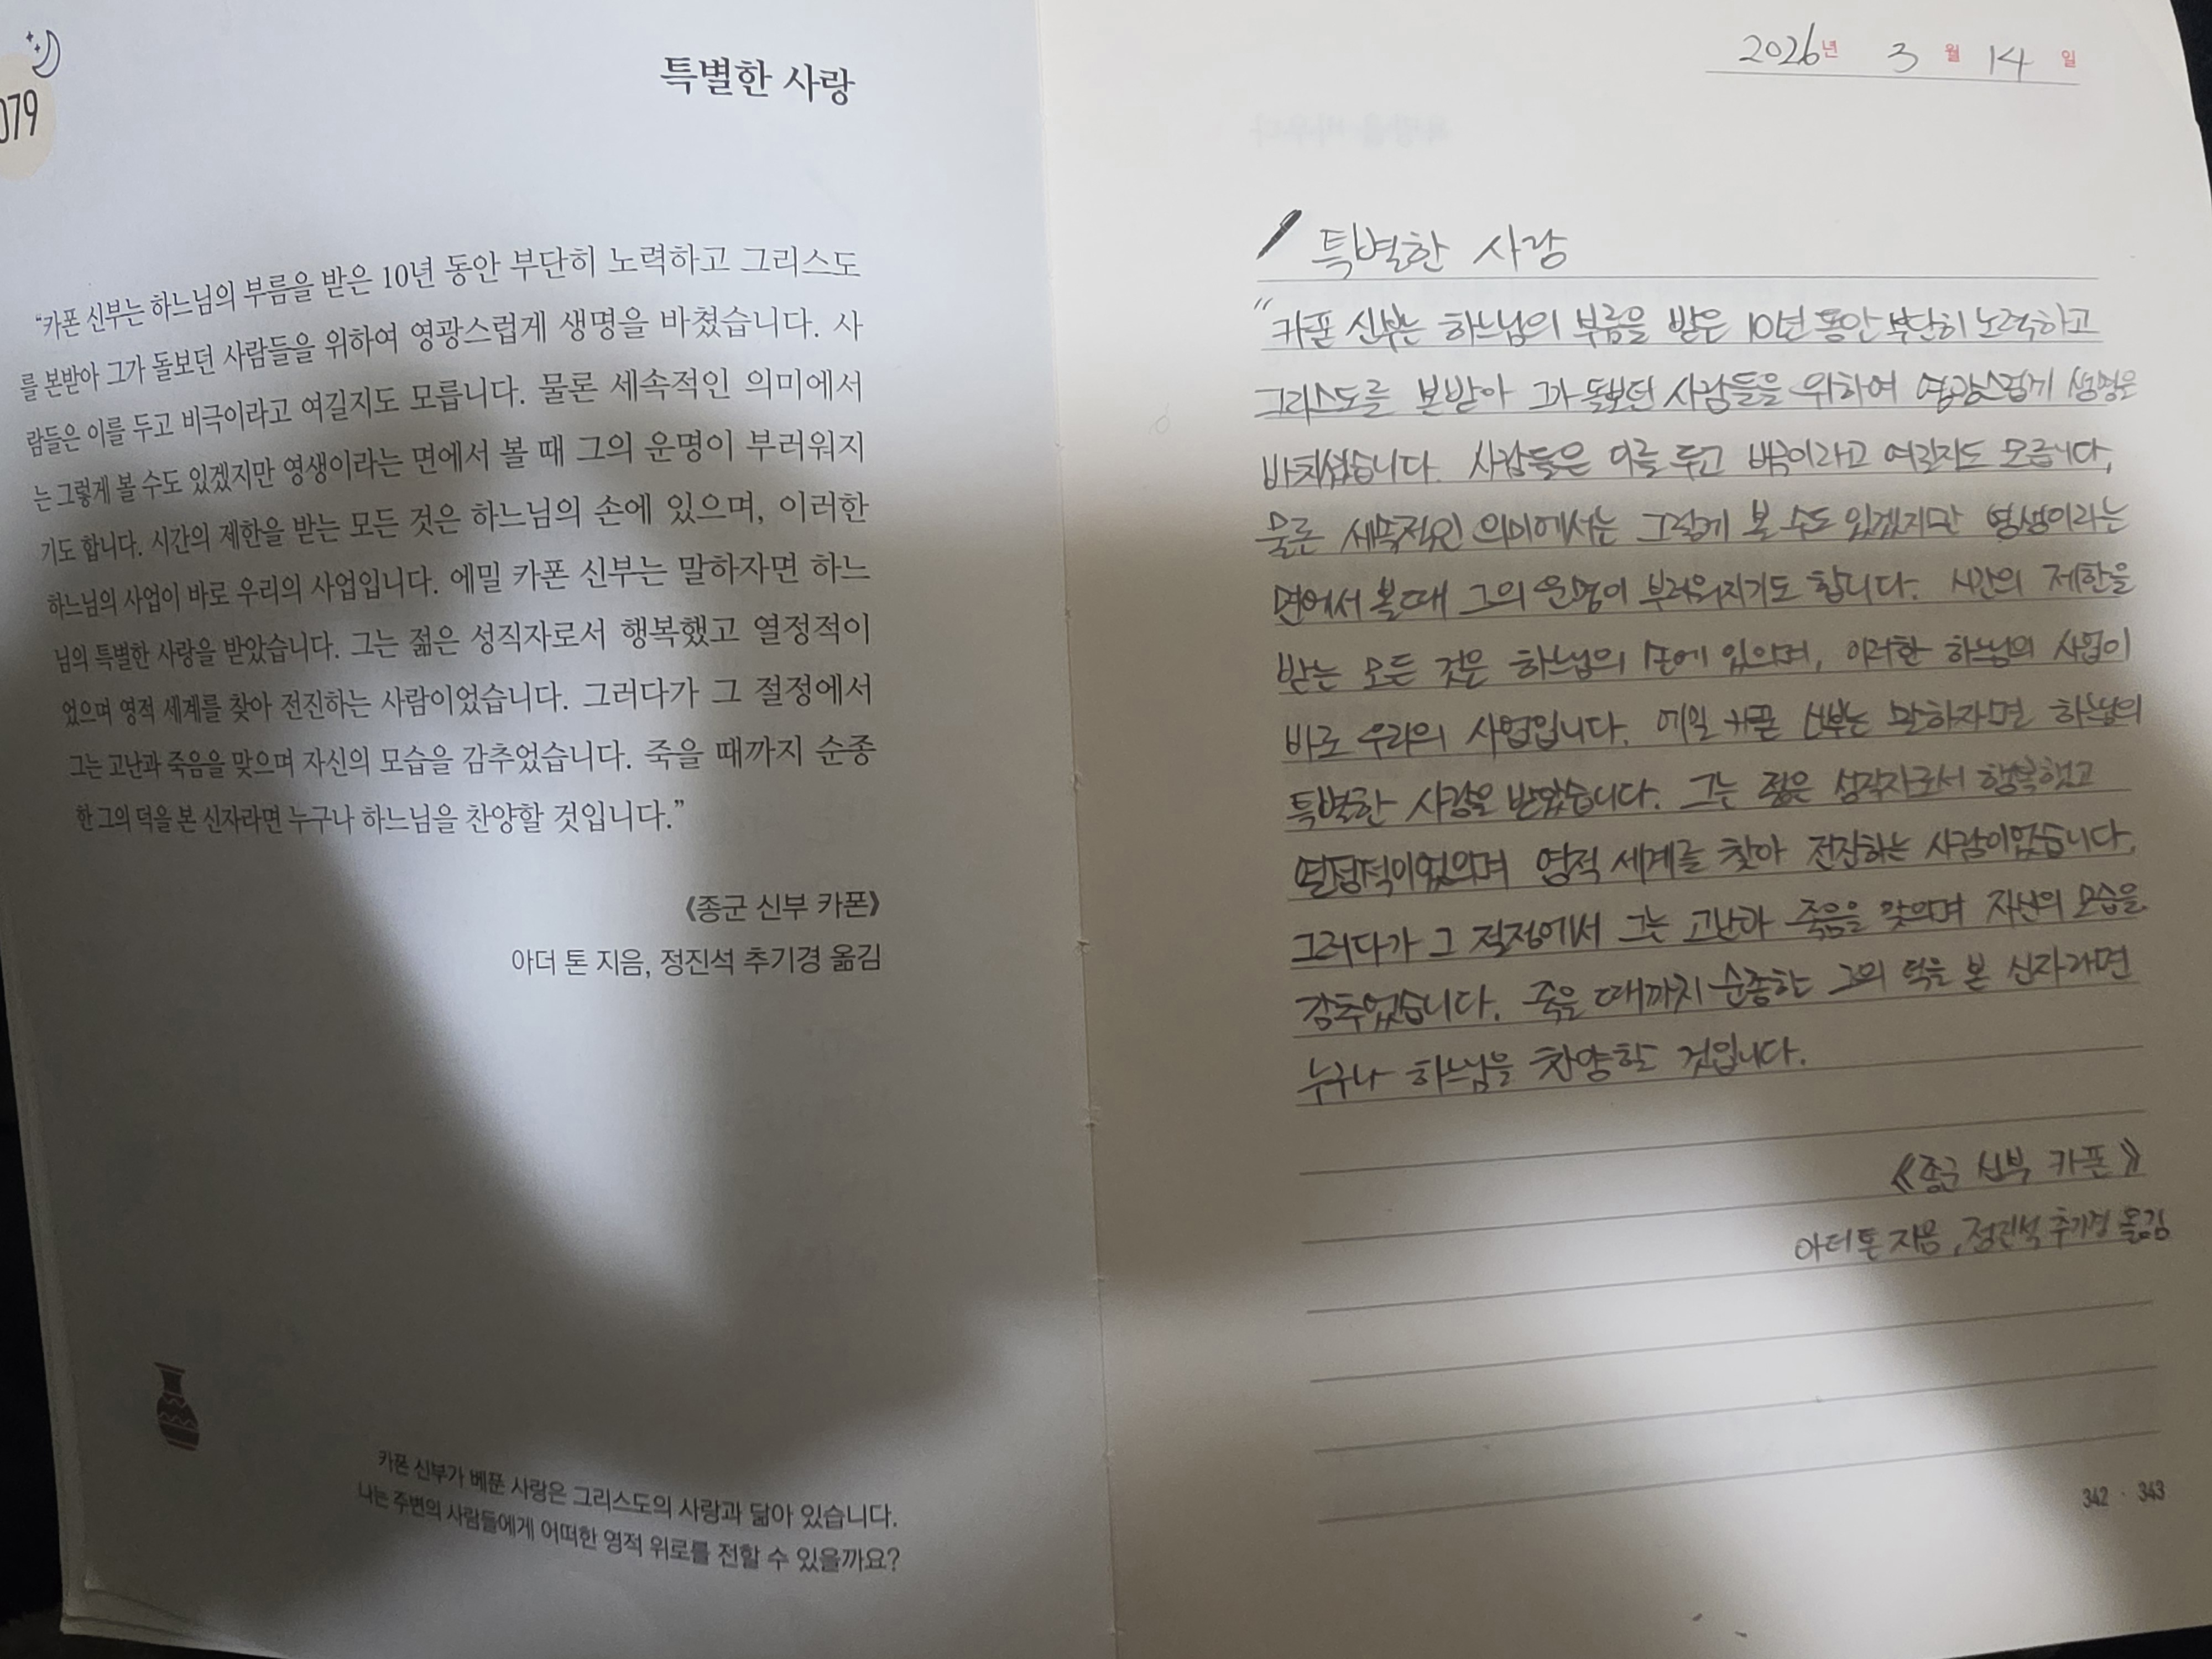 079
특별한 사랑
“카폰 신부는 하느님의 부름을 받은 10년 동안 부단히 노력하고 그리스도
를 본받아 그가 돌보던 사람들을 위하여 영광스럽게 생명을 바쳤습니다. 사
람들은 이를 두고 비극이라고 여길지도 모릅니다. 물론 세속적인 의미에서
는 그렇게 볼 수도 있겠지만 영생이라는 면에서 볼 때 그의 운명이 부러워지
기도 합니다. 시간의 제한을 받는 모든 것은 하느님의 손에 있으며, 이러한
하느님의 사업이 바로 우리의 사업입니다. 에밀 카폰 신부는 말하자면 하느
님의 특별한 사랑을 받았습니다. 그는 젊은 성직자로서 행복했고 열정적이
었으며 영적 세계를 찾아 전진하는 사람이었습니다. 그러다가 그 절정에서
그는 고난과 죽음을 맞으며 자신의 모습을 감추었습니다. 죽을 때까지 순종
한 그의 덕을 본 신자라면 누구나 하느님을 찬양할 것입니다.”
《종군 신부 카폰》
아더 톤 지음, 정진석 추기경 옮김
카폰 신부가 베푼 사랑은 그리스도의 사랑과 닮아 있습니다.
나는 주변의 사람들에게 어떠한 영적 위로를 전할 수 있을까요?
2026년 3월 14일
특별한 사랑
“카폰 신부는 하느님의 부름을 받은 10년 동안 부단히 노력하고
그리스도를 본받아 그가 돌보던 사람들을 위하여 영광스럽게 생명을
바치셨습니다. 사람들은 이를 두고 비극이라고 여길지도 모릅니다.
물론 세속적인 의미에서는 그렇게 볼 수도 있겠지만 영생이라는
면에서 볼 때 그의 운명이 부러워지기도 합니다. 시간의 제한을
받는 모든 것은 하느님의 손에 있으며, 이러한 하느님의 사업이
바로 우리의 사업입니다. 에밀 카폰 신부는 말하자면 하느님의
특별한 사랑을 받았습니다. 그는 젊은 성직자로서 행복했고
열정적이었으며 영적 세계를 찾아 전진하는 사람이었습니다.
그러다가 그 절정에서 그는 고난과 죽음을 맞으며 자신의 모습을
감추었습니다. 죽을 때까지 순종한 그의 덕을 본 신자라면
누구나 하느님을 찬양할 것입니다.
《종군 신부 카폰》
아더 톤 지음, 정진석 추기경 옮김
342 · 343